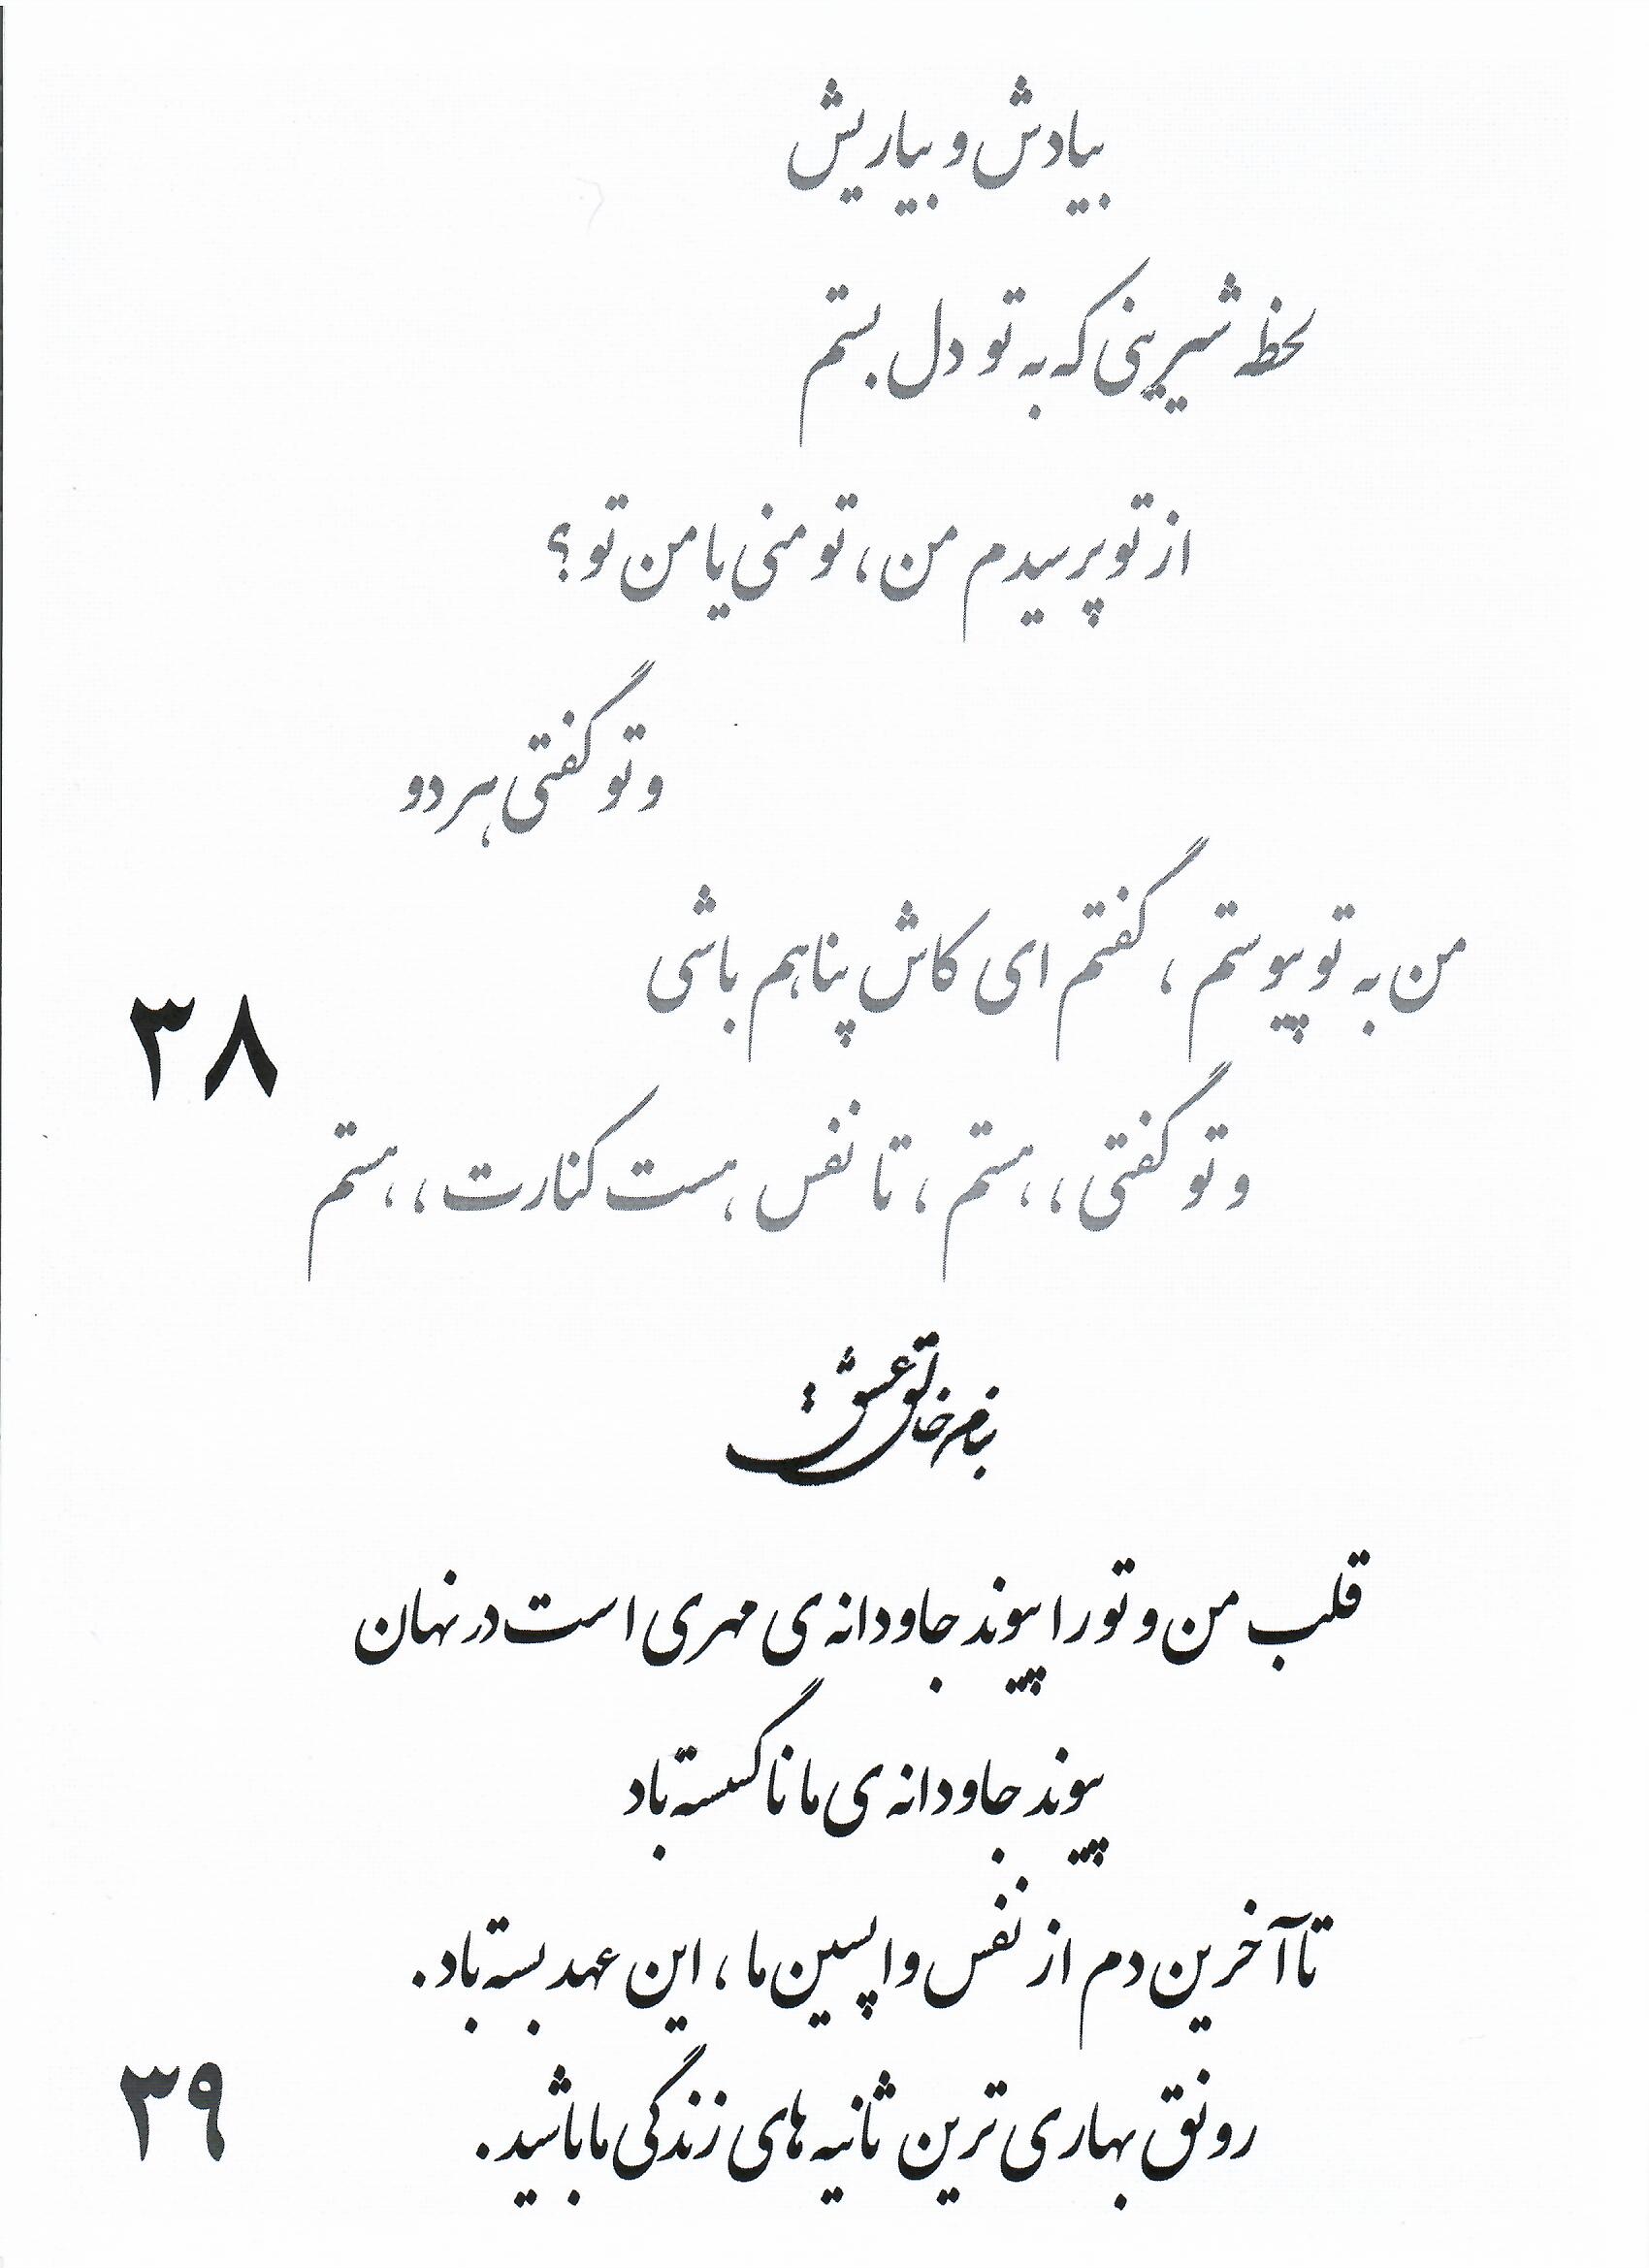 بیادش و بیاریش
لحظه شیرینی که به تو دل بستم
از تو پرسیدم من ، تو منی یا من تو ؟
و تو گفتی هر دو
من به تو پیوستم ، گفتم ای کاش پناهم باشی
و تو گفتی ، ، هستم ، تا نفس هست کنارت ، ، هستم
۳۸
بنام خالق عشق
قلب من و تو را پیوند جاودانه ی مهری است در نهان
پیوند جاودانه ی ما ناگسسته باد
تا آخرین دم از نفس واپسین ما ، این عهد بسته باد .
رونق بهاری ترین ثانیه های زندگی ما باشید .
۳۹